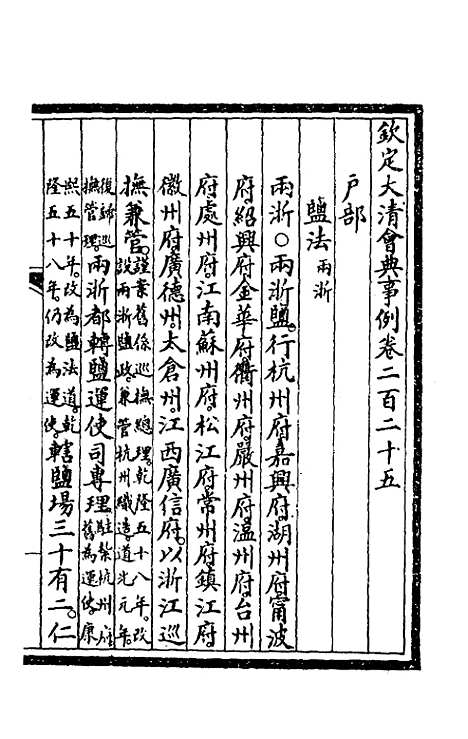 欽定大清會典事例卷二百二十五
戶部
鹽法兩浙
兩浙○兩浙鹽。行杭州府嘉興府湖州府甯波
府紹興府金華府衢州府嚴州府溫州府台州
府處州府江南蘇州府松江府常州府鎮江府
徽州府廣德州太倉州江西廣信府以浙江巡
撫兼管。謹案舊係巡撫總理。乾隆五十八年。改
設兩浙鹽政。兼管杭州織造。道光元年。
復歸巡
撫管理。兩浙都轉鹽運使司專理。駐紮杭州府
舊為運使。康
熙五十年。改為鹽法道。乾
隆五十八年。仍改為運使。轄鹽場三十有二。仁